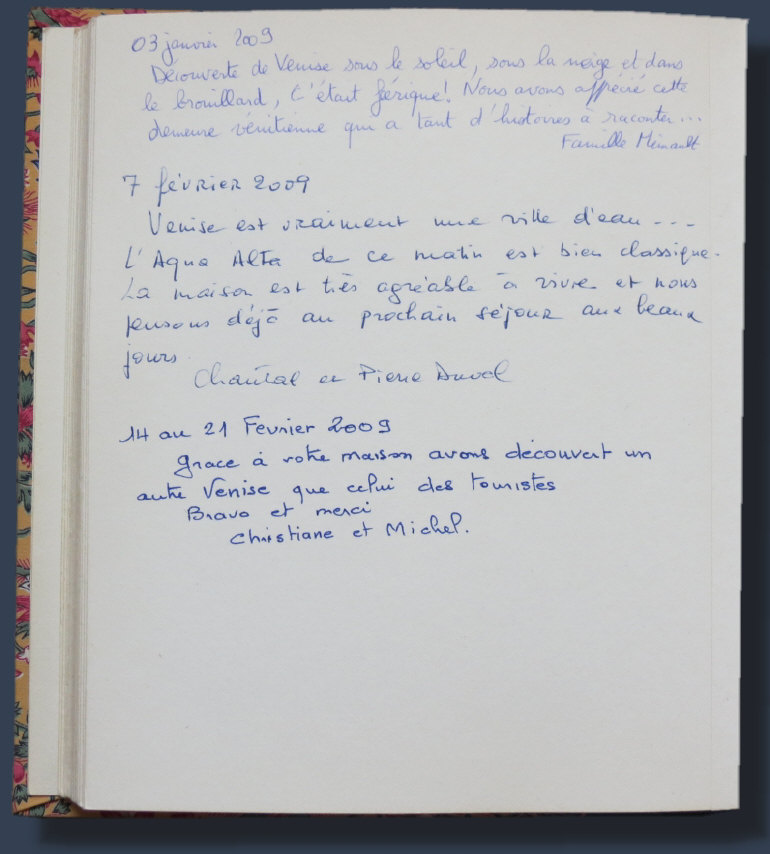 03 janvier 2009
Découverte de Venise sous le soleil, sous la neige et dans
le brouillard, C'était férique! Nous avons apprécié cette
demeure vénitienne qui a tant d'histoires à raconter...
Famille Meinault
7 février 2009
Venise est vraiment une ville d'eau ---
L'Aqua Alta de ce matin est bien classique.
La maison est très agréable à vivre et nous
pensons déjà au prochain séjour aux beaux
jours.
Chantal et Pierre Duval
14 au 21 Fevrier 2009
grace à votre maison avons découvert un
autre Venise que celui des touristes
Bravo et merci
Christiane et Michel.